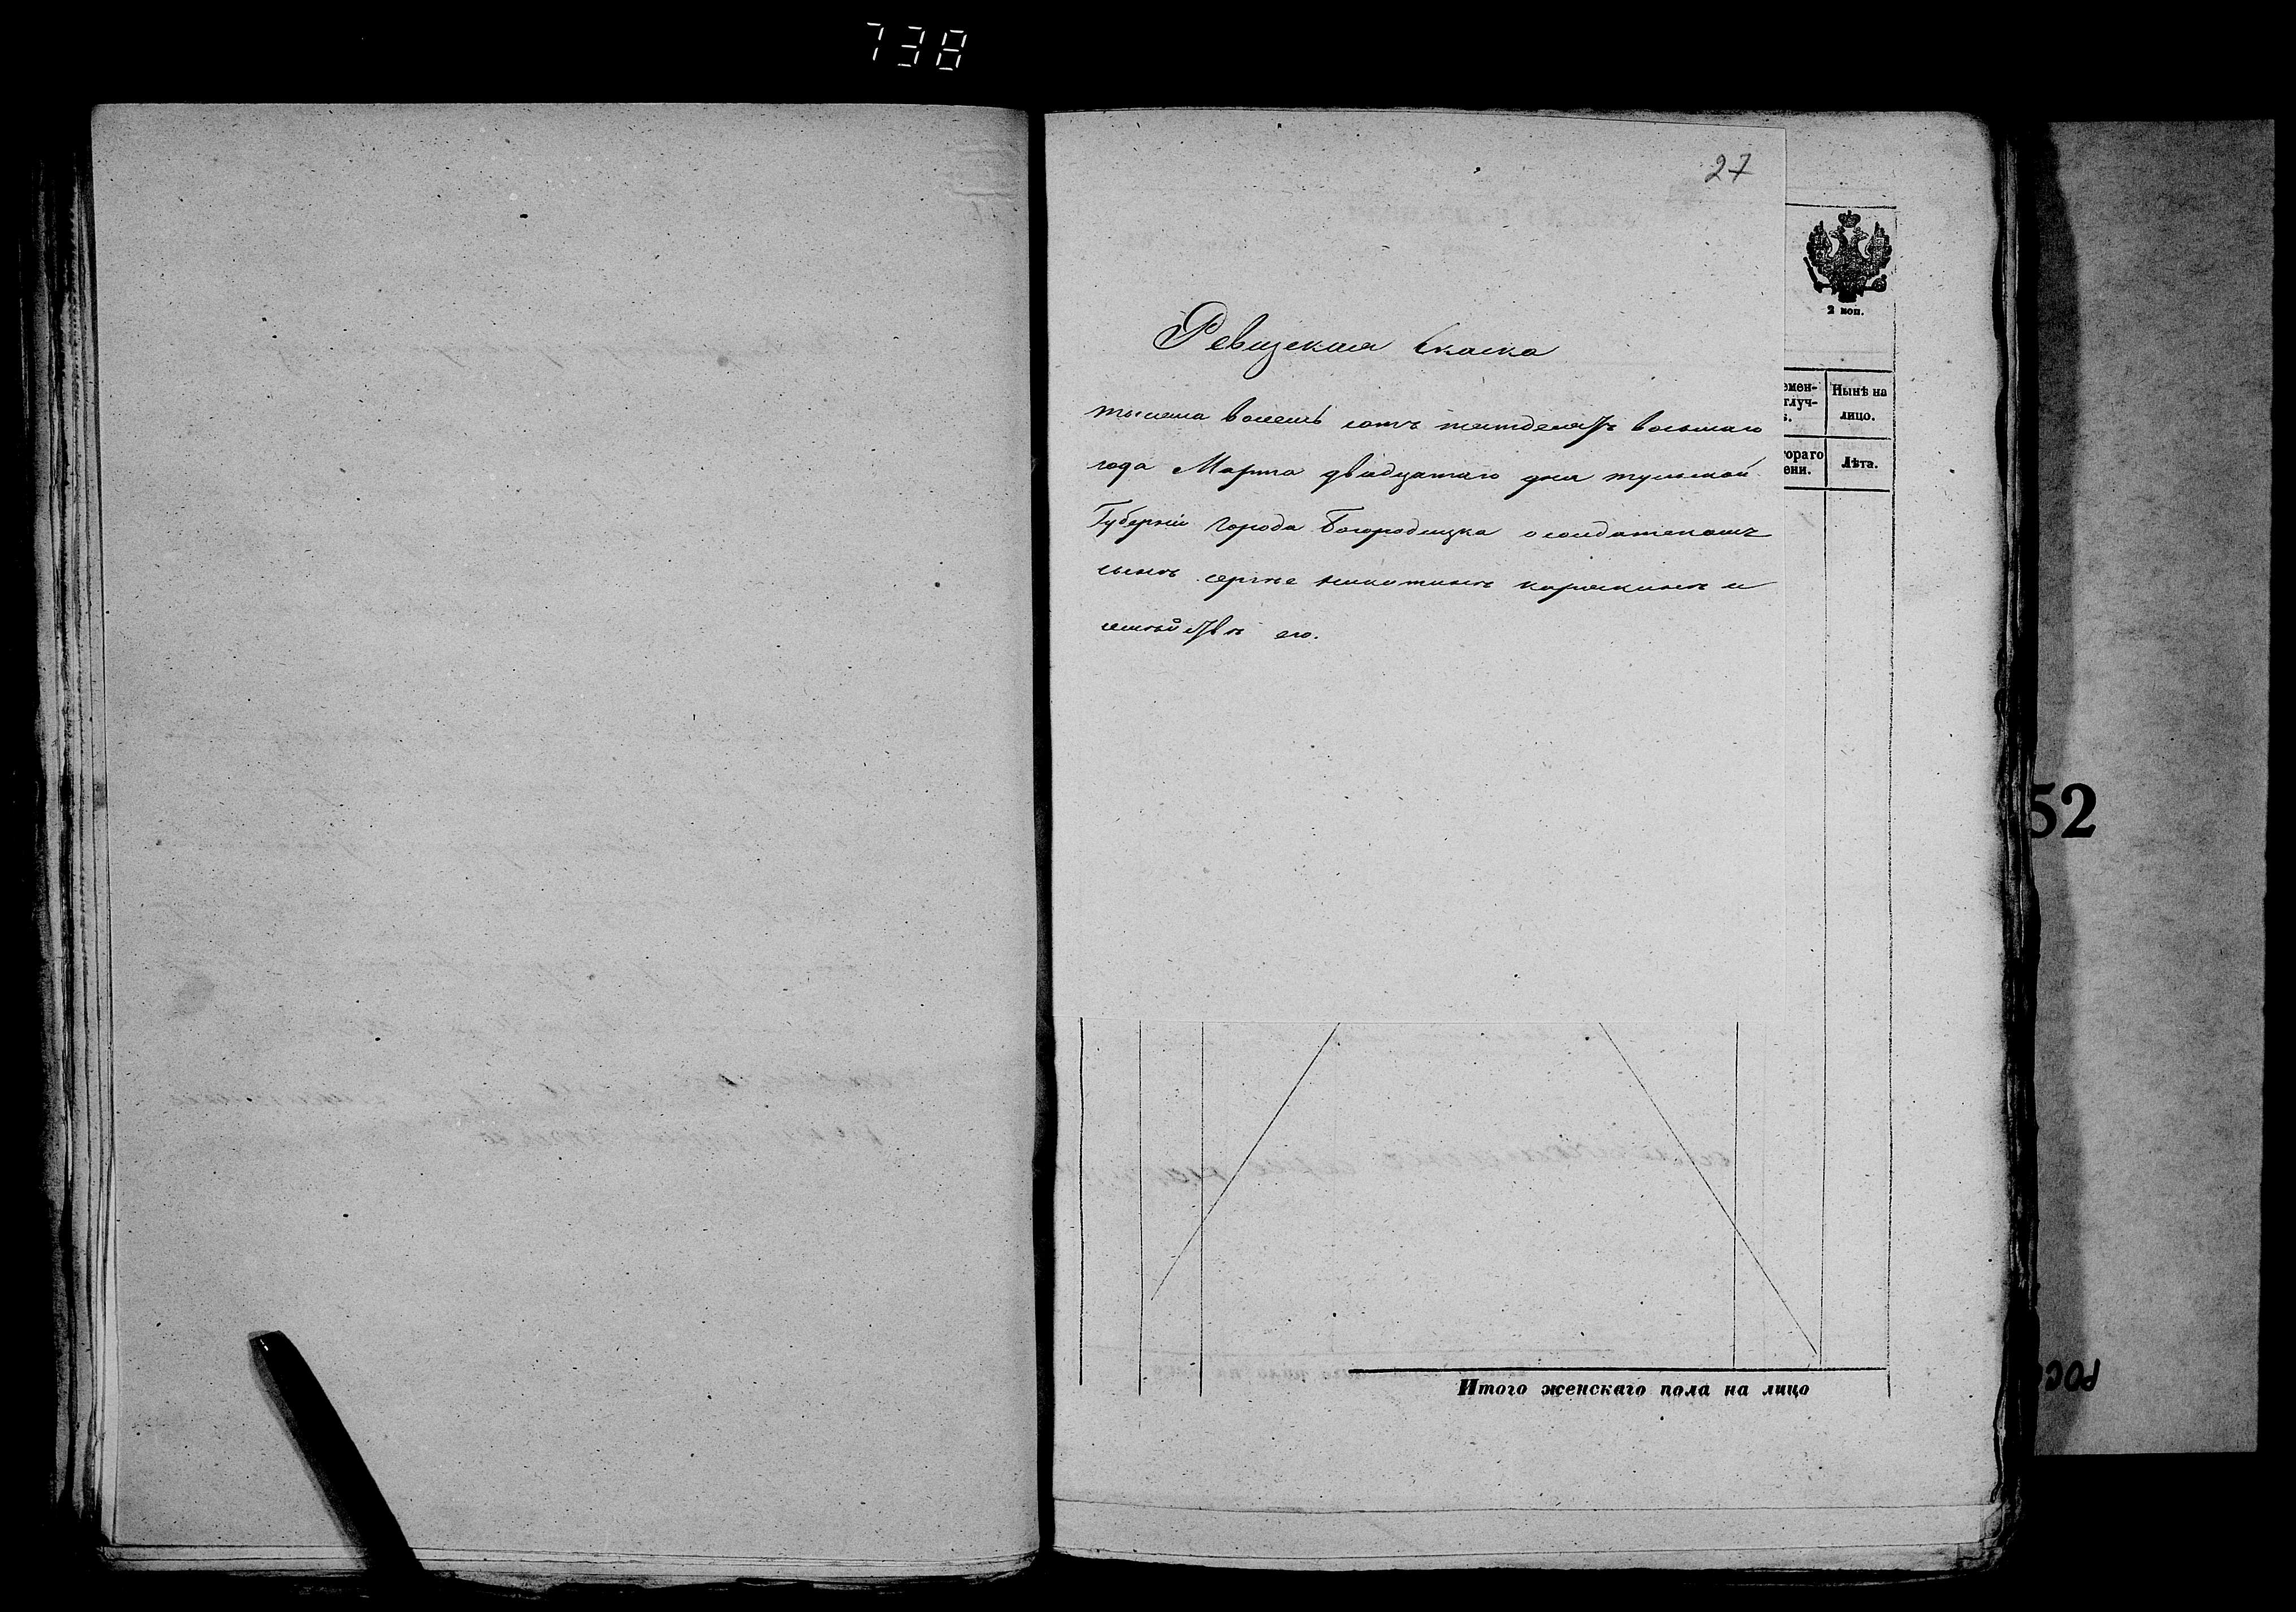 738
27
2 коп.
Ревизская Скаска
тысяча восемь сотъ пятдесятъ восьмаго
года Марта двадцатаго дня тульской
Губерніи города Богородицка о солдатскомъ
сынѣ сергѣе никитинѣ корякинѣ и
семѣйствѣ его.
емен-
тлуч-
Нынѣ на
лицо.
ораго
ени.
Лѣта.
52
Итого женскаго пола на лицо